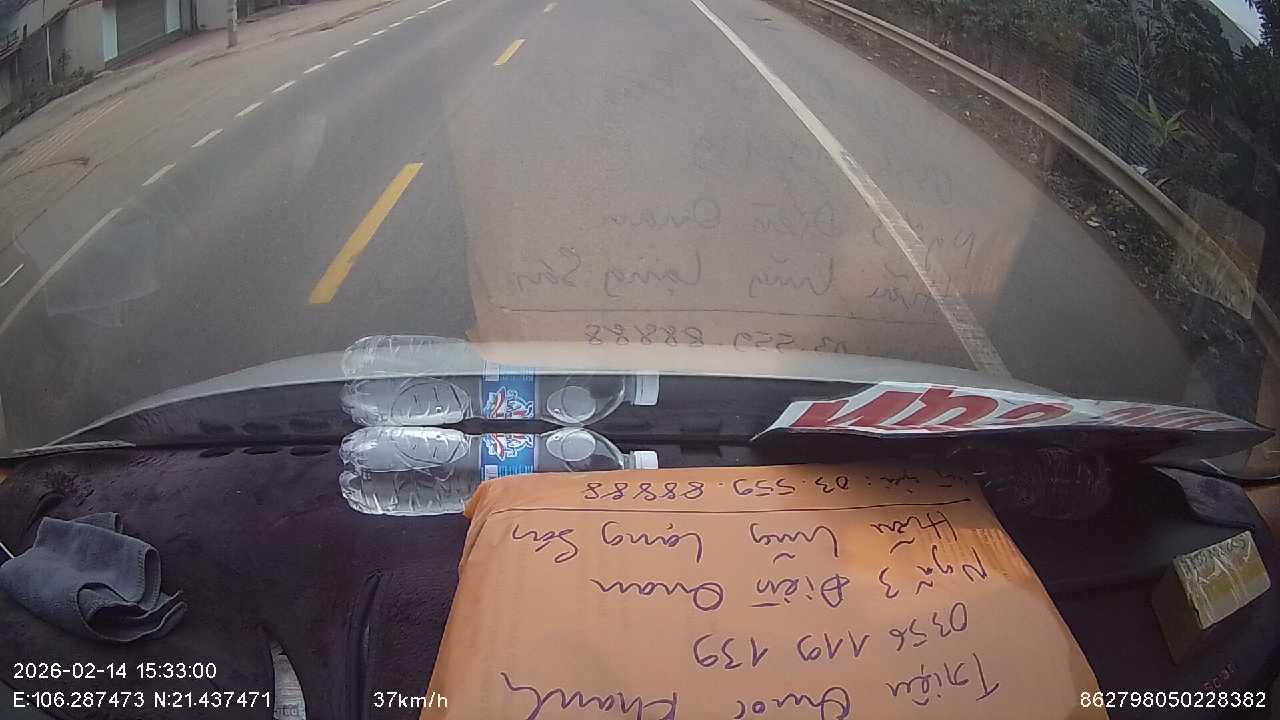 Triệu Quốc Khanh
0356 119 139
Ngã 3 Điềm Quan
Hữu Lũng Lạng Sơn
03.559.88888
2026-02-14 15:33:00
E:106.287473 N:21.437471
37km/h
862798050228382